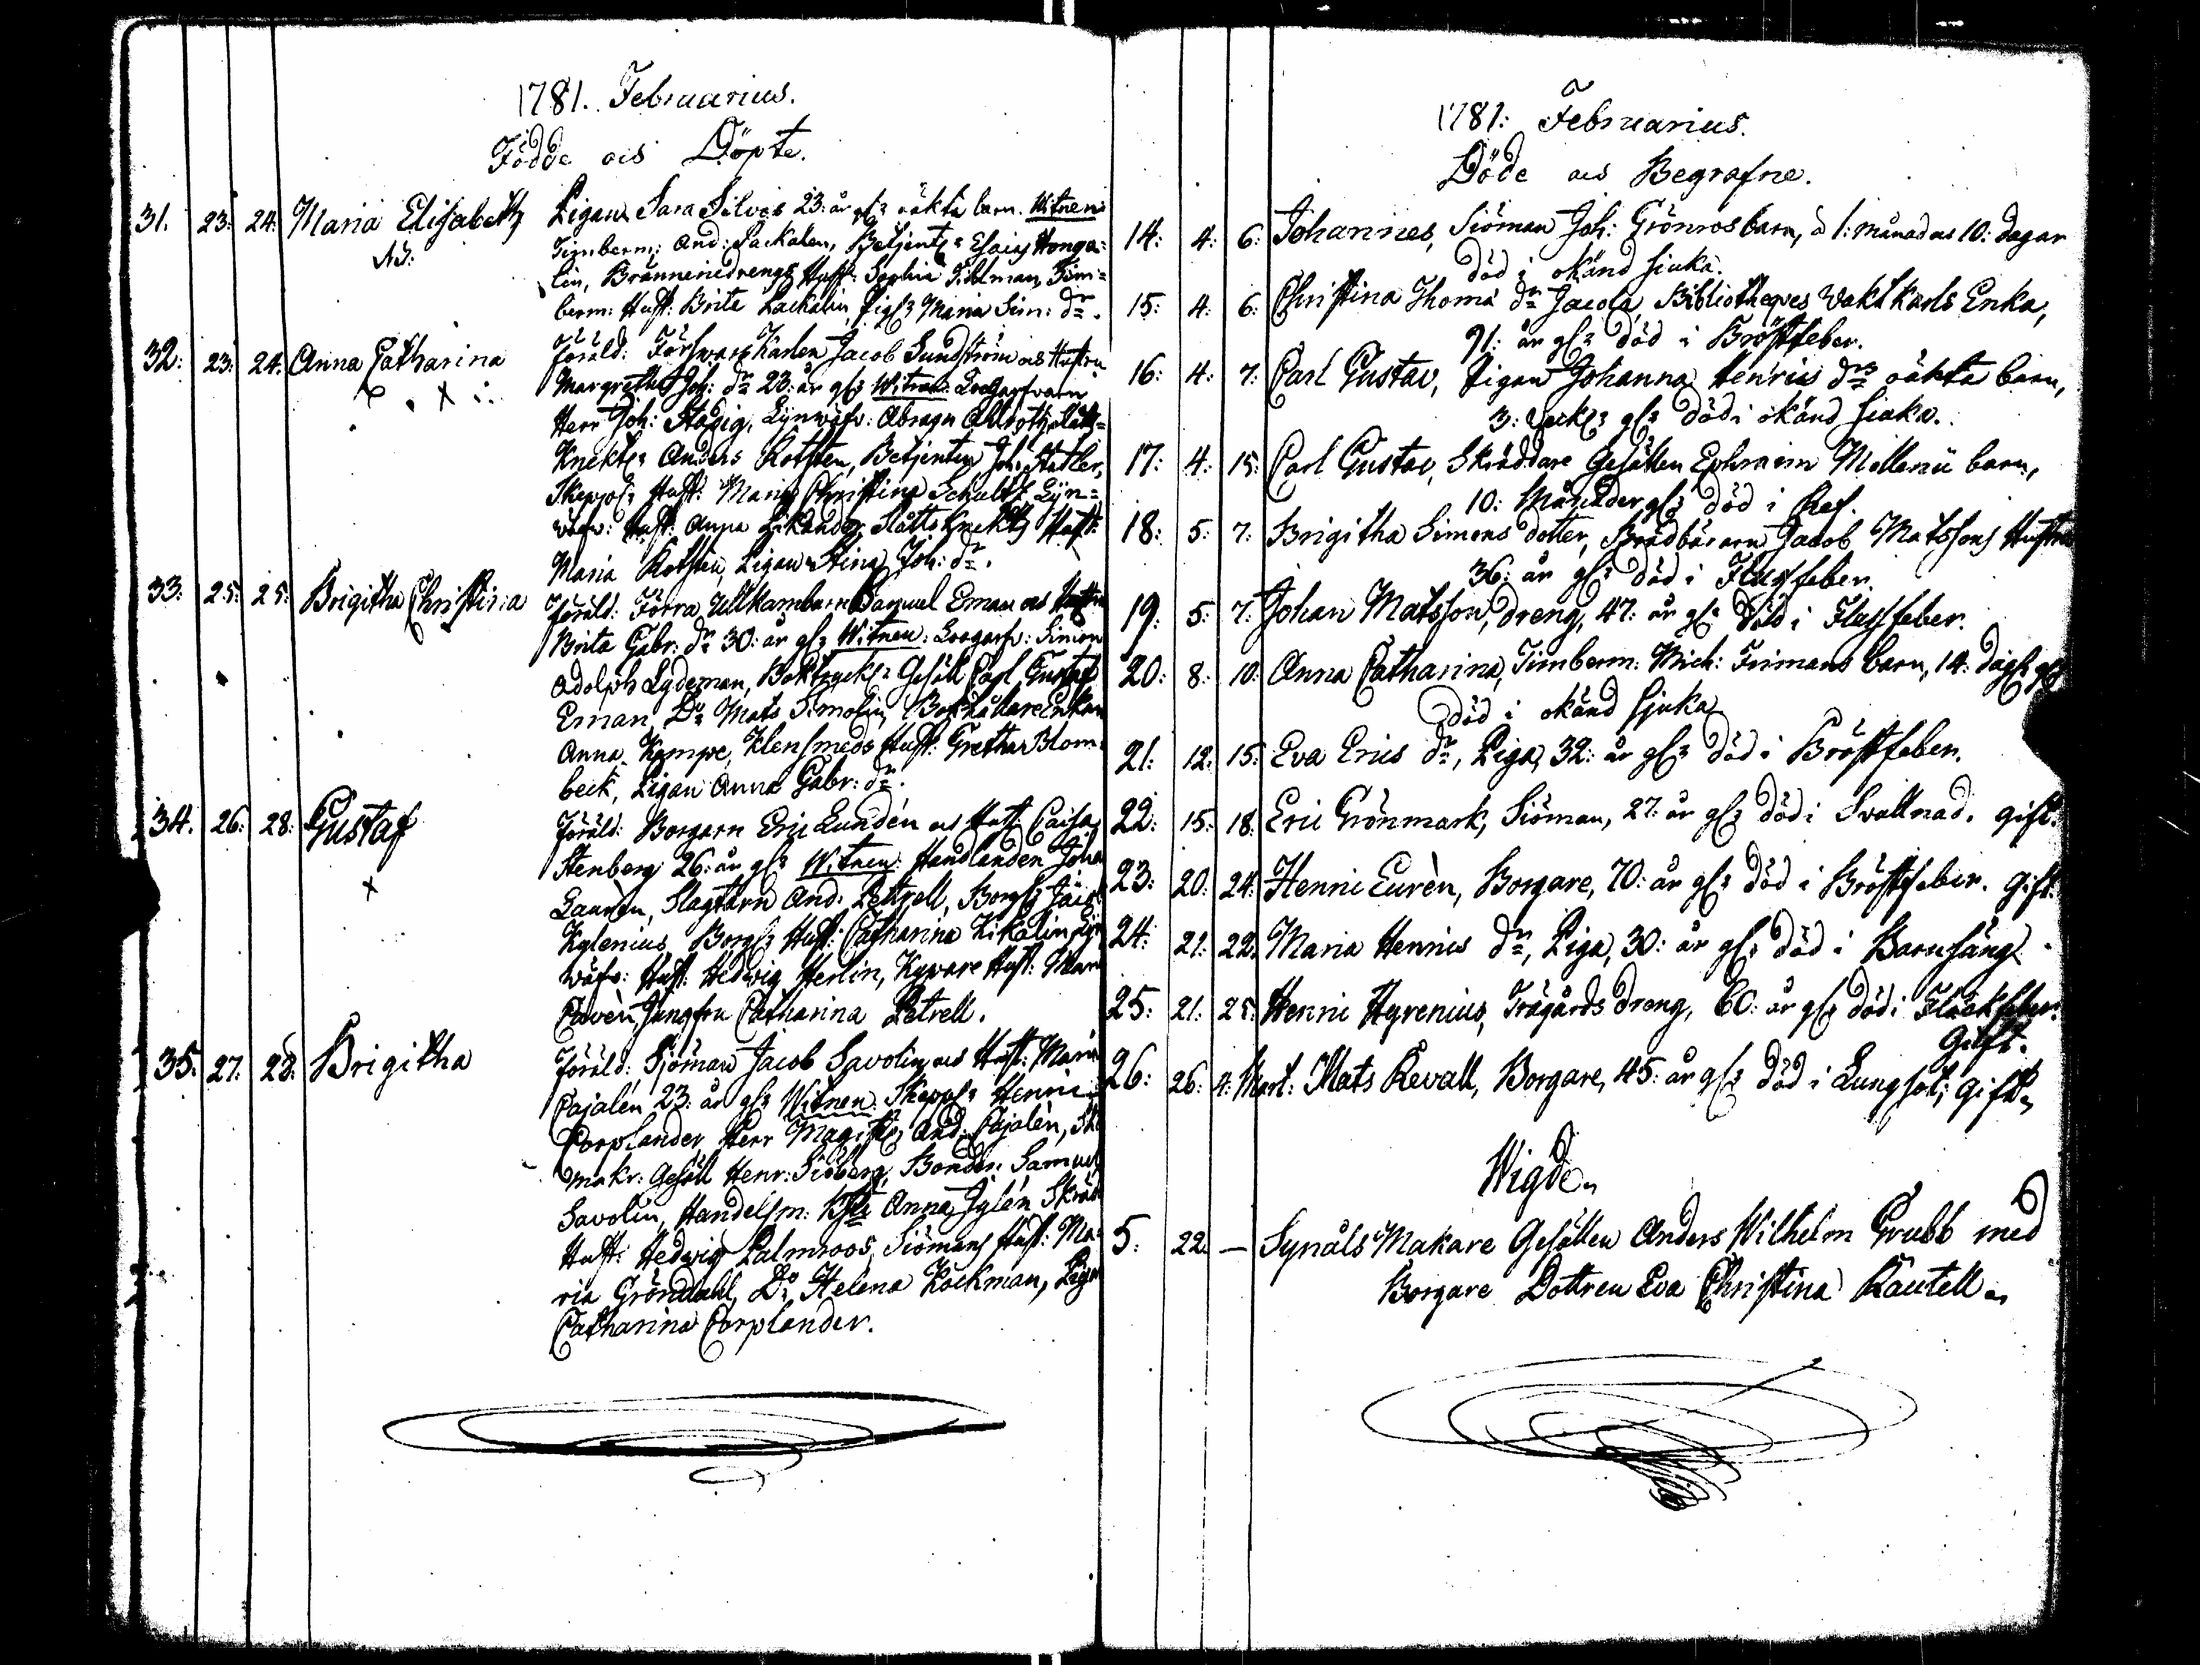 1781. Februarius.
Födde och Döpte.
31. 23. 24. Maria Elisabeth Pigans Sara Silvos 23: år gl: oäkta barn. Witnen:
N: Timberm: And: Packalen, Betjent: Esaias Honga=
lin, Brännerie drengs Hust: Sophia Tihlman, Tim=
berm: Hust: Brita Packalin, Pig: Maria Sim: dr.
32: 23: 24. Anna Catharina Föräld: Försvars Karlen Jacob Sundström och Hustru
Margretha Joh: dr 23: år gl: Witnen:
Herr Joh: Linwäfv:
Knekt: Anders Rothen, Betjenten Joh: Statler,
Hust: Maria Christina Schultz, Lin=
wäfv: Hust: Anna Slotts Knekts Hust:
Maria Rothen, Pigan Stina Joh: dr.
33: 25: 25: Brigitha Christina Föräld: Förra Samuel Eman och Hustru
Brita Gabr: dr 30: år gl: Witnen: Simon
Adolph Lydeman, Boktryck: Gesäll Carl Gustaf
Eman, Do Mats Simolin, Bokhållare Enkan
Anna Kempe, Klensmeds Hust: Gretha Blom=
beck, Pigan Anna Gabr: dr.
34. 26: 28: Gustaf Föräld: Borgarn Eric Lundén och Hust: Caisa
Stenberg 26: år gl: Witnen: Handlanden Joha
Laurén, Slagtarn And: Petrell, Borg: Jac:
Kylenius, Borg: Hust: Catharina Kikalin, Lin
wäfv: Hust: Hedwig Herlin, Hust: Mar
Jungfru Catharina Petrell.
35. 27. 28. Brigitha Föräld: Sjöman Jacob Savolin och Hust: Maria
Pajalén 23: år gl: Witnen: Skepp: Henric
Corplander, Herr Magist: And: Pajalén, Sko
makr: Gesäll Henr: Siöberg, Bonden Samuel
Savolin, Handelsm: Anna Iglén, Skräd
Hust: Hedwig Palmroos, Siömans Hust: Ma=
ria Gröndahl, Do Helena Kockman, Pigan
Catharina Corplander.
1781: Februarius.
Döde och Begrafne.
14: 4: 6: Johannes, Siöman Joh: Grönros barn, à 1: månad och 10: dagar
död i okänd siuka.
15: 4: 6: Christina Thomæ dr Jacola, Bibliotheques Vaktkarls Enka,
91: år gl: död i Bröstfeber.
16: 4: 7: Carl Gustav, Pigan Johanna Henrics drs oäkta barn,
3: Veck: gl: död i okänd siuka.
17: 4: 15: Carl Gustav, Skräddare Gesällen Ephraim Mellenii barn,
10: Månader gl: död i Ref.
18: 5: 7: Brigitha Simons dotter, Brädbäraren Jacob Matssons Hustru
36: år gl: död i Flussfeber.
19: 5: 7: Johan Matsson, dreng, 47: år gl: död i Flussfeber.
20: 8: 10: Anna Catharina, Timberm: Mich: Frimans barn, 14: dag: gl:
död i okänd sjuka
21: 12: 15: Eva Erics dr, Piga, 32: år gl: död i Bröstfeber.
22: 15: 18: Eric Grönmark, Siöman, 27: år gl: död i Svullnad. gift.
23: 20: 24: Henric Eurèn, Borgare, 70: år gl: död i Bröstfeber. gift.
24: 21: 22: Maria Henrics dr, Piga, 30: år gl: död i Barnsäng.
25: 21: 25: Henric Hyrenius, Trägårds dreng, 60: år gl: död i Fläckfeber.
Gift.
26: 26: 4: Mart: Mats Revall, Borgare, 45: år gl: död i Lungsot; gift.
Wigde.
5: 22. — Synåls Makare Gesällen Anders Wilhelm Grubb med
Borgare Dottren Eva Christina Kautell.